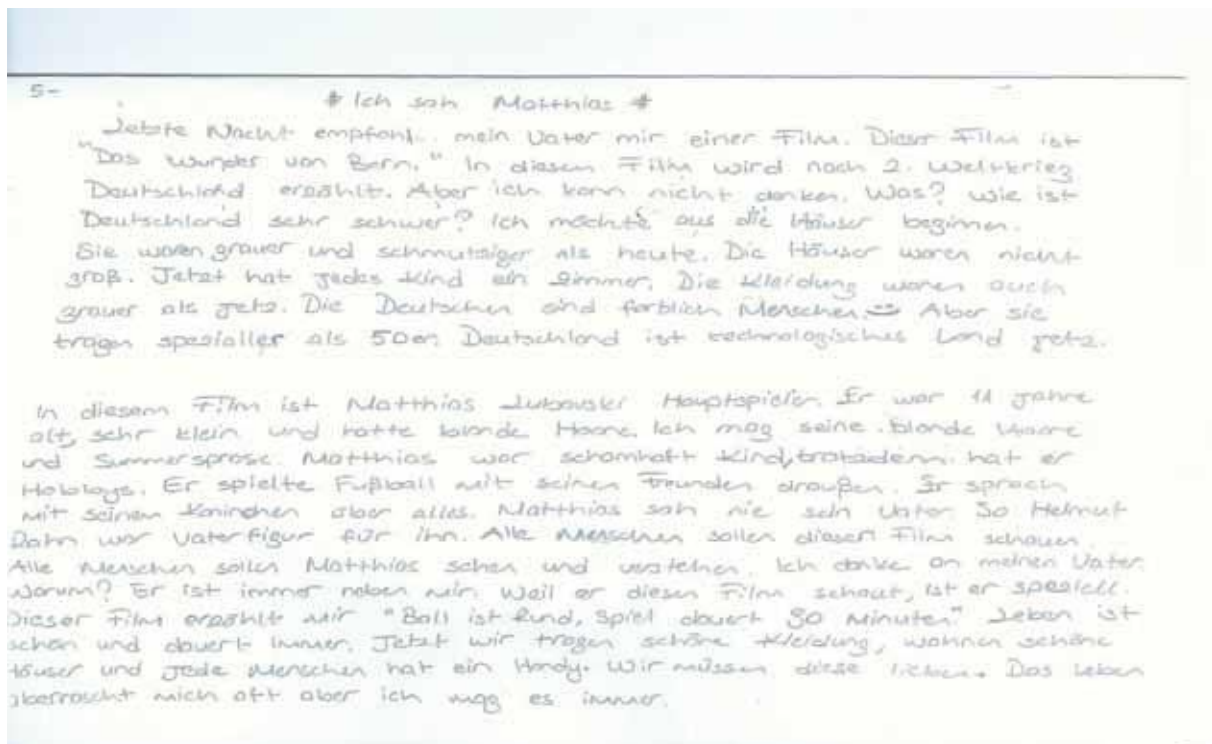 5-
* Ich sah Matthias *
Letzte Nacht empfahl mein Vater mir einer Film. Dieser Film ist
"Das Wunder von Bern." In diesen Film wird nach 2. Weltkrieg
Deutschland erzählt. Aber ich kann nicht denken. Was? Wie ist
Deutschland sehr schwer? Ich möchte aus die Häuser beginnen.
Sie waren grauer und schmutziger als heute. Die Häuser waren nicht
groß. Jetzt hat jedes Kind ein Zimmer. Die Kleidung waren auch
grauer als jetz. Die Deutschen sind farblich Menschen Aber sie
tragen spezialler als 50er. Deutschland ist technologisches Land jetz.
In diesem Film ist Matthias Lubavski Hauptspieler. Er war 11 Jahre
alt, sehr klein und hatte blonde Haare. Ich mag seine blonde Haare
und Summersprose. Matthias war schamhaft Kind, trotzdem hat er
Hobbys. Er spielte Fußball mit seinen Freunden draußen. Er sprach
mit seinem Kaninchen über alles. Matthias sah nie sein Vater. So Helmut
Rahn war Vaterfigur für ihn. Alle Menschen sollen diesen Film schauen.
Alle Menschen sollen Matthias sehen und verstehen. Ich danke an meinen Vater.
Warum? Er ist immer neben mir. Weil er diesen Film schaut, ist er speziell.
Dieser Film erzählt mir "Ball ist Rund, Spiel dauert 90 Minuten" Leben ist
schön und dauert immer. Jetzt wir tragen schöne Kleidung, wohnen schöne
Häuser und jede Menschen hat ein Handy. Wir müssen diese lieben. Das Leben
überrascht mich oft aber ich mag es immer.